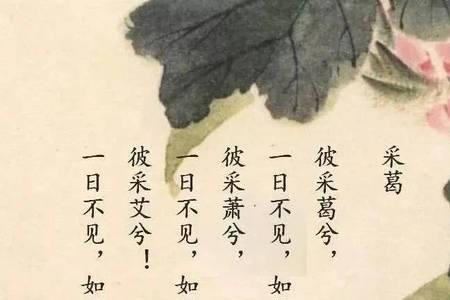 采葛
彼采葛兮，
一日不见，如
彼采萧兮，
一日不见，如
彼采艾兮！
一日不见，如